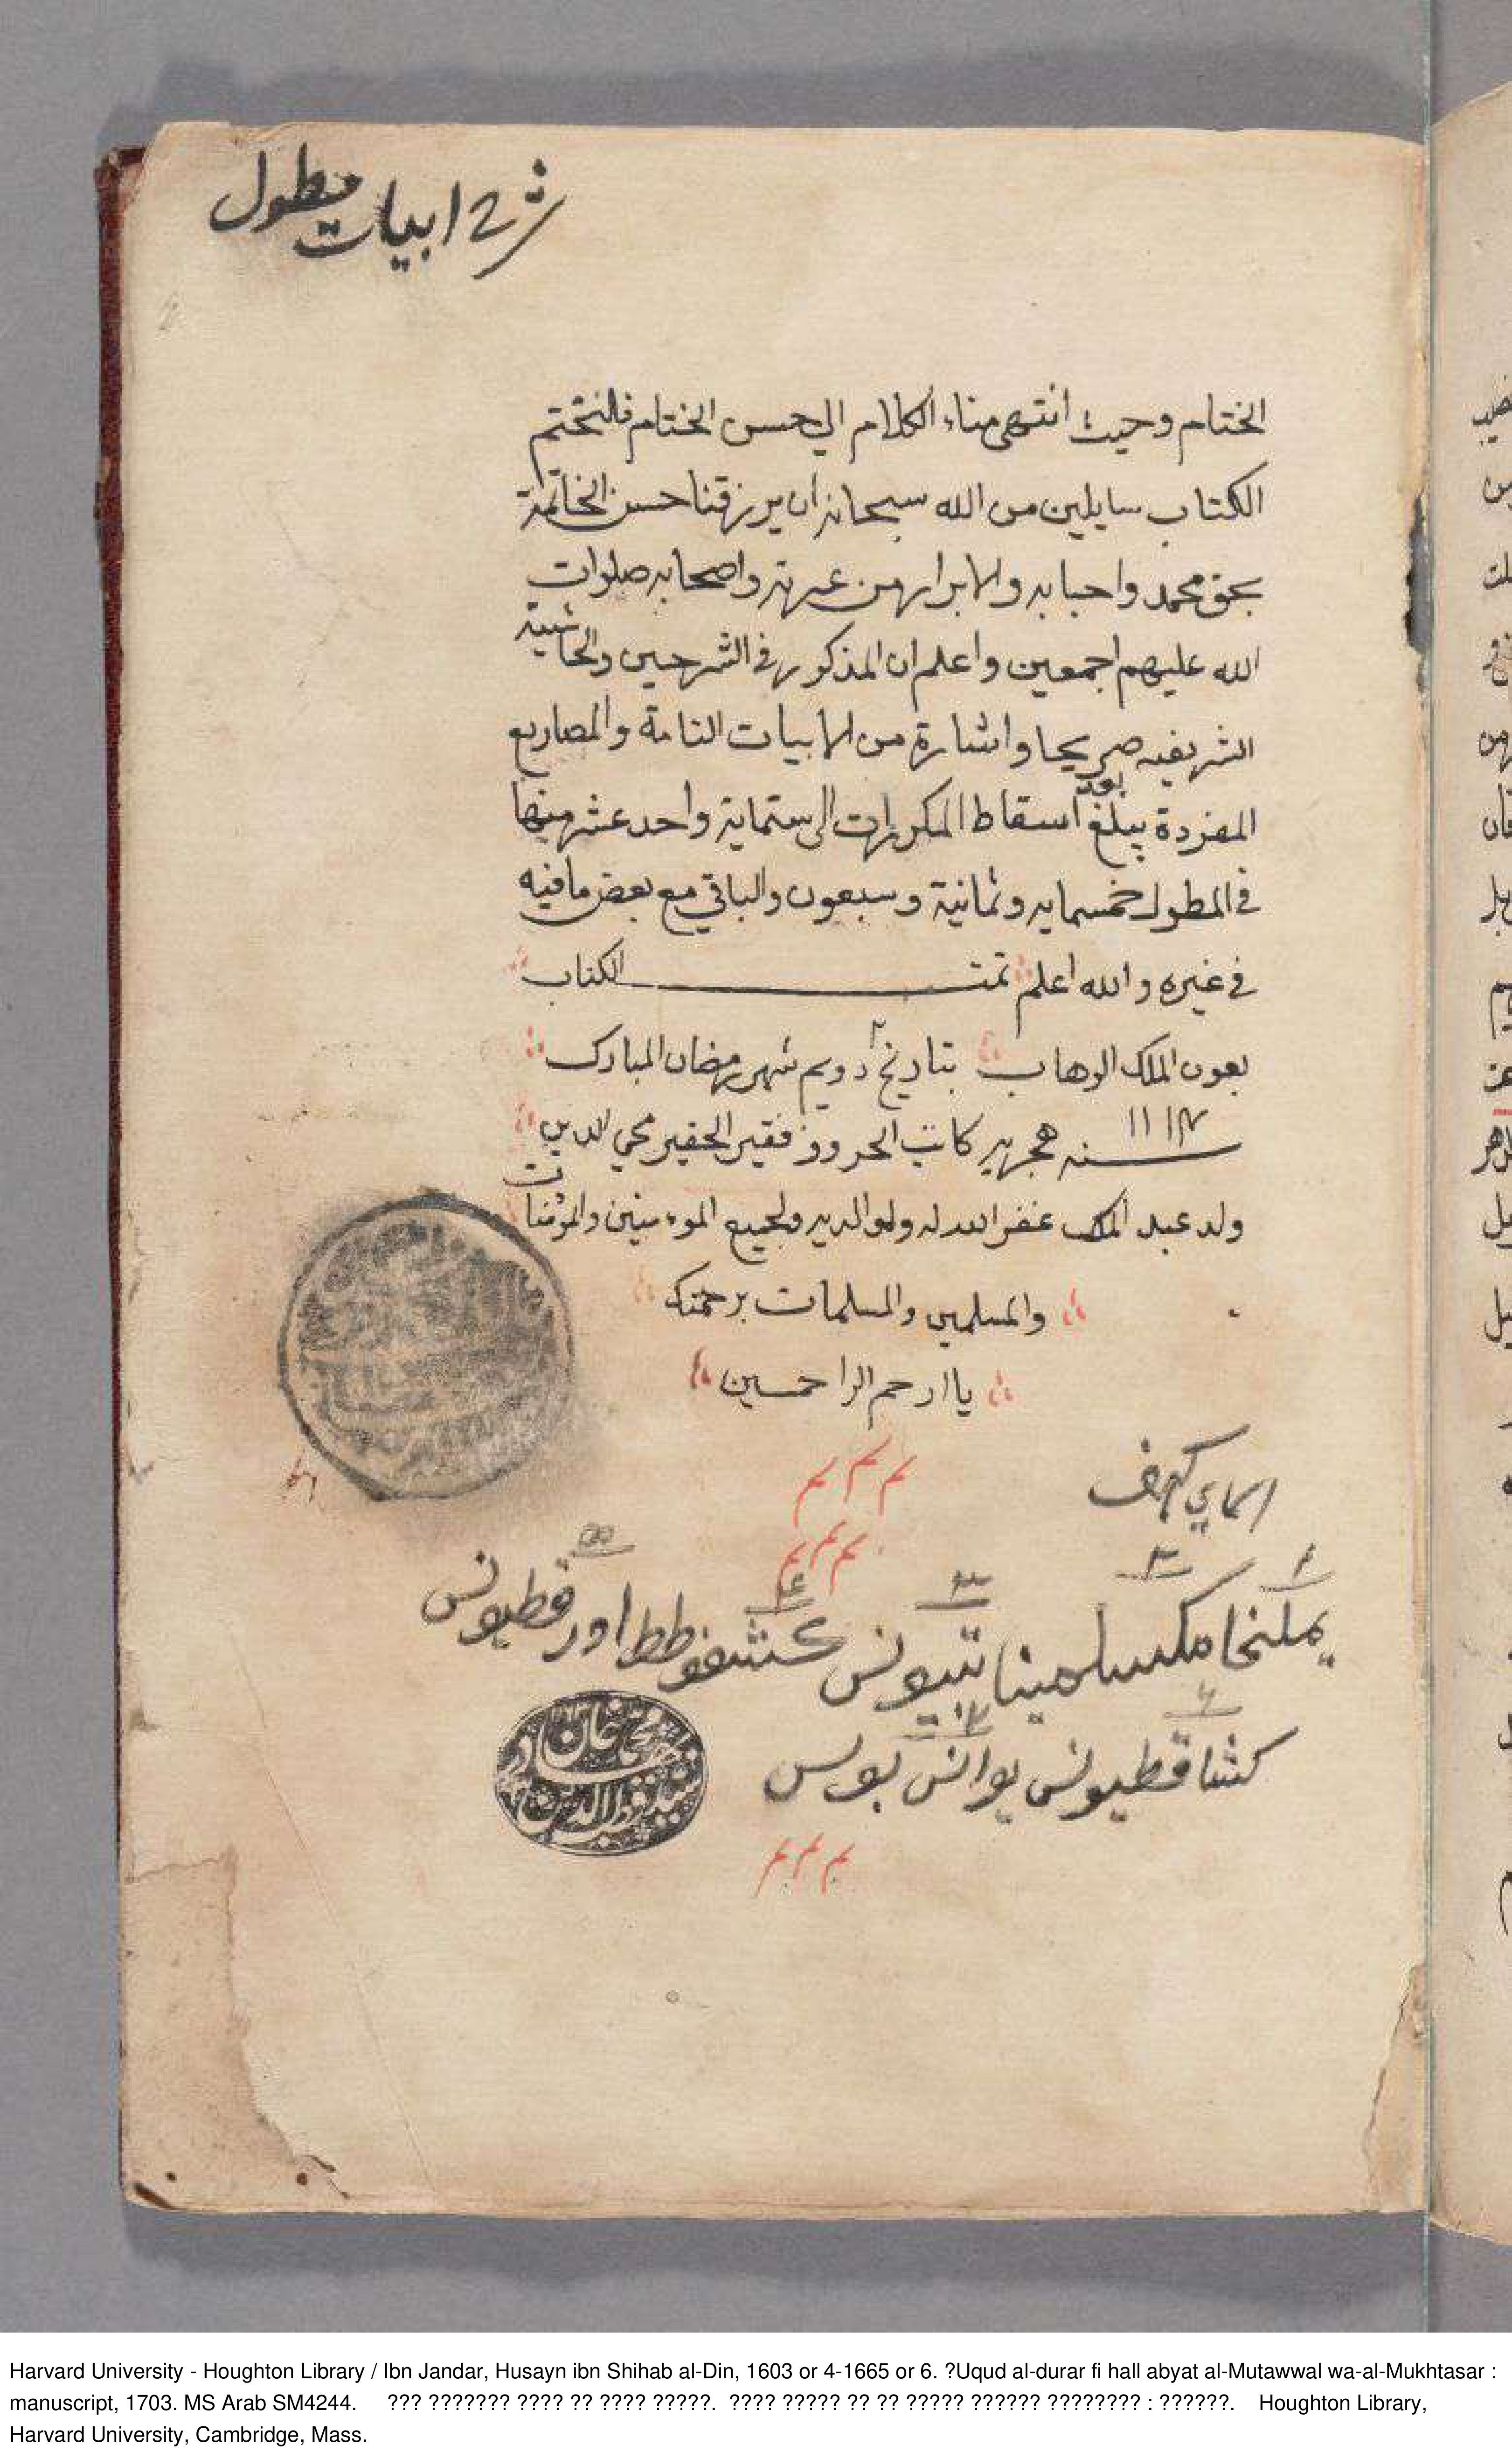 شرح ابيات مطول
الختام وحيث انتهى منا، الكلام الي حسن الختام فلنختتم
الكتاب سايلين من الله سبحانه ان يرزقنا حسن الخاتمة
بحق محمد واحبابه والابرار من عترته واصحابه صلوات
الله عليهم اجمعين واعلم ان المذكور في الشرحين والحاشية
الشريفيه صريحا واشارة من الابيات التامة والمصاريع
المفردة يبلغ بعد اسقاط المكررات الى ستماية واحد عشر منها
في المطول خمسمايه وثمانية وسبعون والباقي مع بعض ما فيه
في غيره والله اعلم تمت الكتاب
بعون الملك الوهاب بتاريخ ٢ دويم شهر رمضان المبارك
سنه ١١١٤ هجريه كاتب الحروف فقير الحقير محي الدين
ولد عبد الملك غفر الله له ولوالديه ولجميع الموءمنين والمؤمنات
والمسلمين والمسلمات برحمتك
يا ارحم الراحمين
اسماي كهف
يمليخا مكسلمينا تبيونس كشفوطط اور قطيونس
كشاقطيونس يوانس بولس
Harvard University - Houghton Library / Ibn Jandar, Husayn ibn Shihab al-Din, 1603 or 4-1665 or 6. ?Uqud al-durar fi hall abyat al-Mutawwal wa-al-Mukhtasar :
manuscript, 1703. MS Arab SM4244. ??? ??????? ???? ?? ???? ?????. ???? ????? ?? ?? ????? ?????? ???????? : ??????. Houghton Library,
Harvard University, Cambridge, Mass.